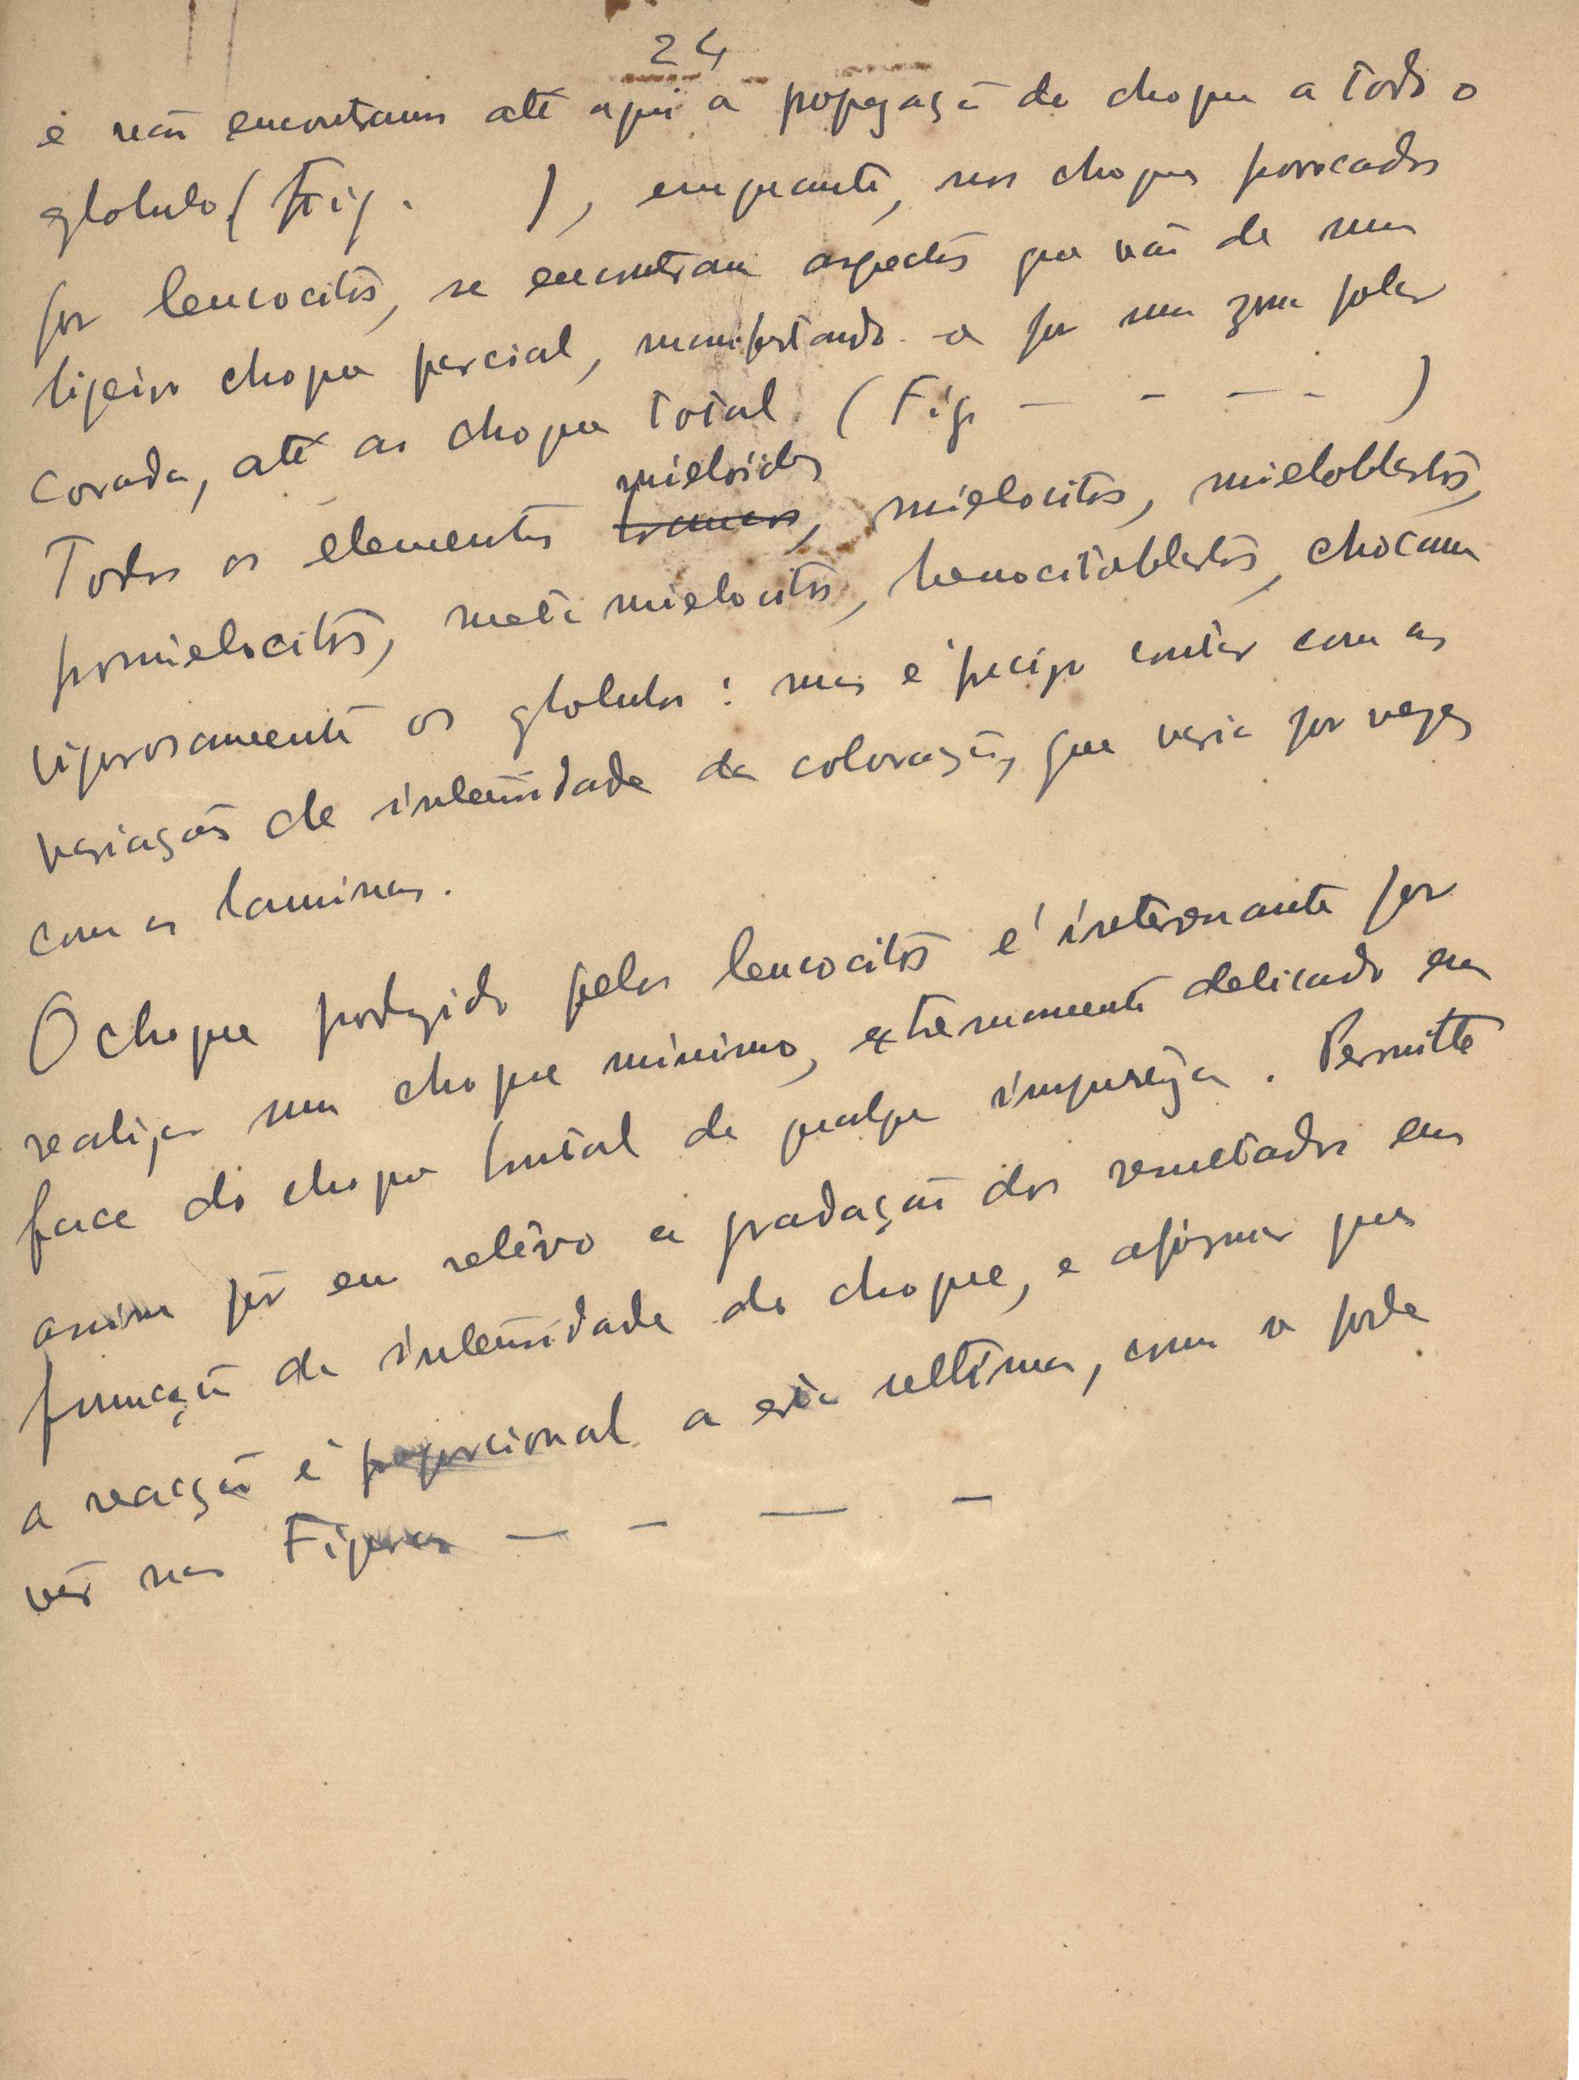 24
e não encontramos até aqui a propagação do choque a todo o
globulo (Fig. ), emquanto, nos choques provocados
por leucocitos, se encontram aspectos que vão de um
ligeiro choque parcial, manifestando-se por uma zona polar
corada, até ao choque total (Fig. — - — - )
Todos os elementos mieloides
brancos, mielocitos, mieloblastos,
promielocitos, metamielocitos, hemocitoblastos, chocam
vigorosamente os globulos: mas é preciso contar com as
variações de intensidade da coloração, que varia por vezes
com as laminas.
O choque produzido pelos leucocitos é interessante por
realizar um choque minimo, extremamente delicado em
face do choque brutal de qualquer impureza. Permitte
assim pôr em relêvo a gradação dos resultados em
função da intensidade do choque, e afirmar que
a reacção é proporcional a esta ultima, como se pode
vêr nas Figuras — - — -